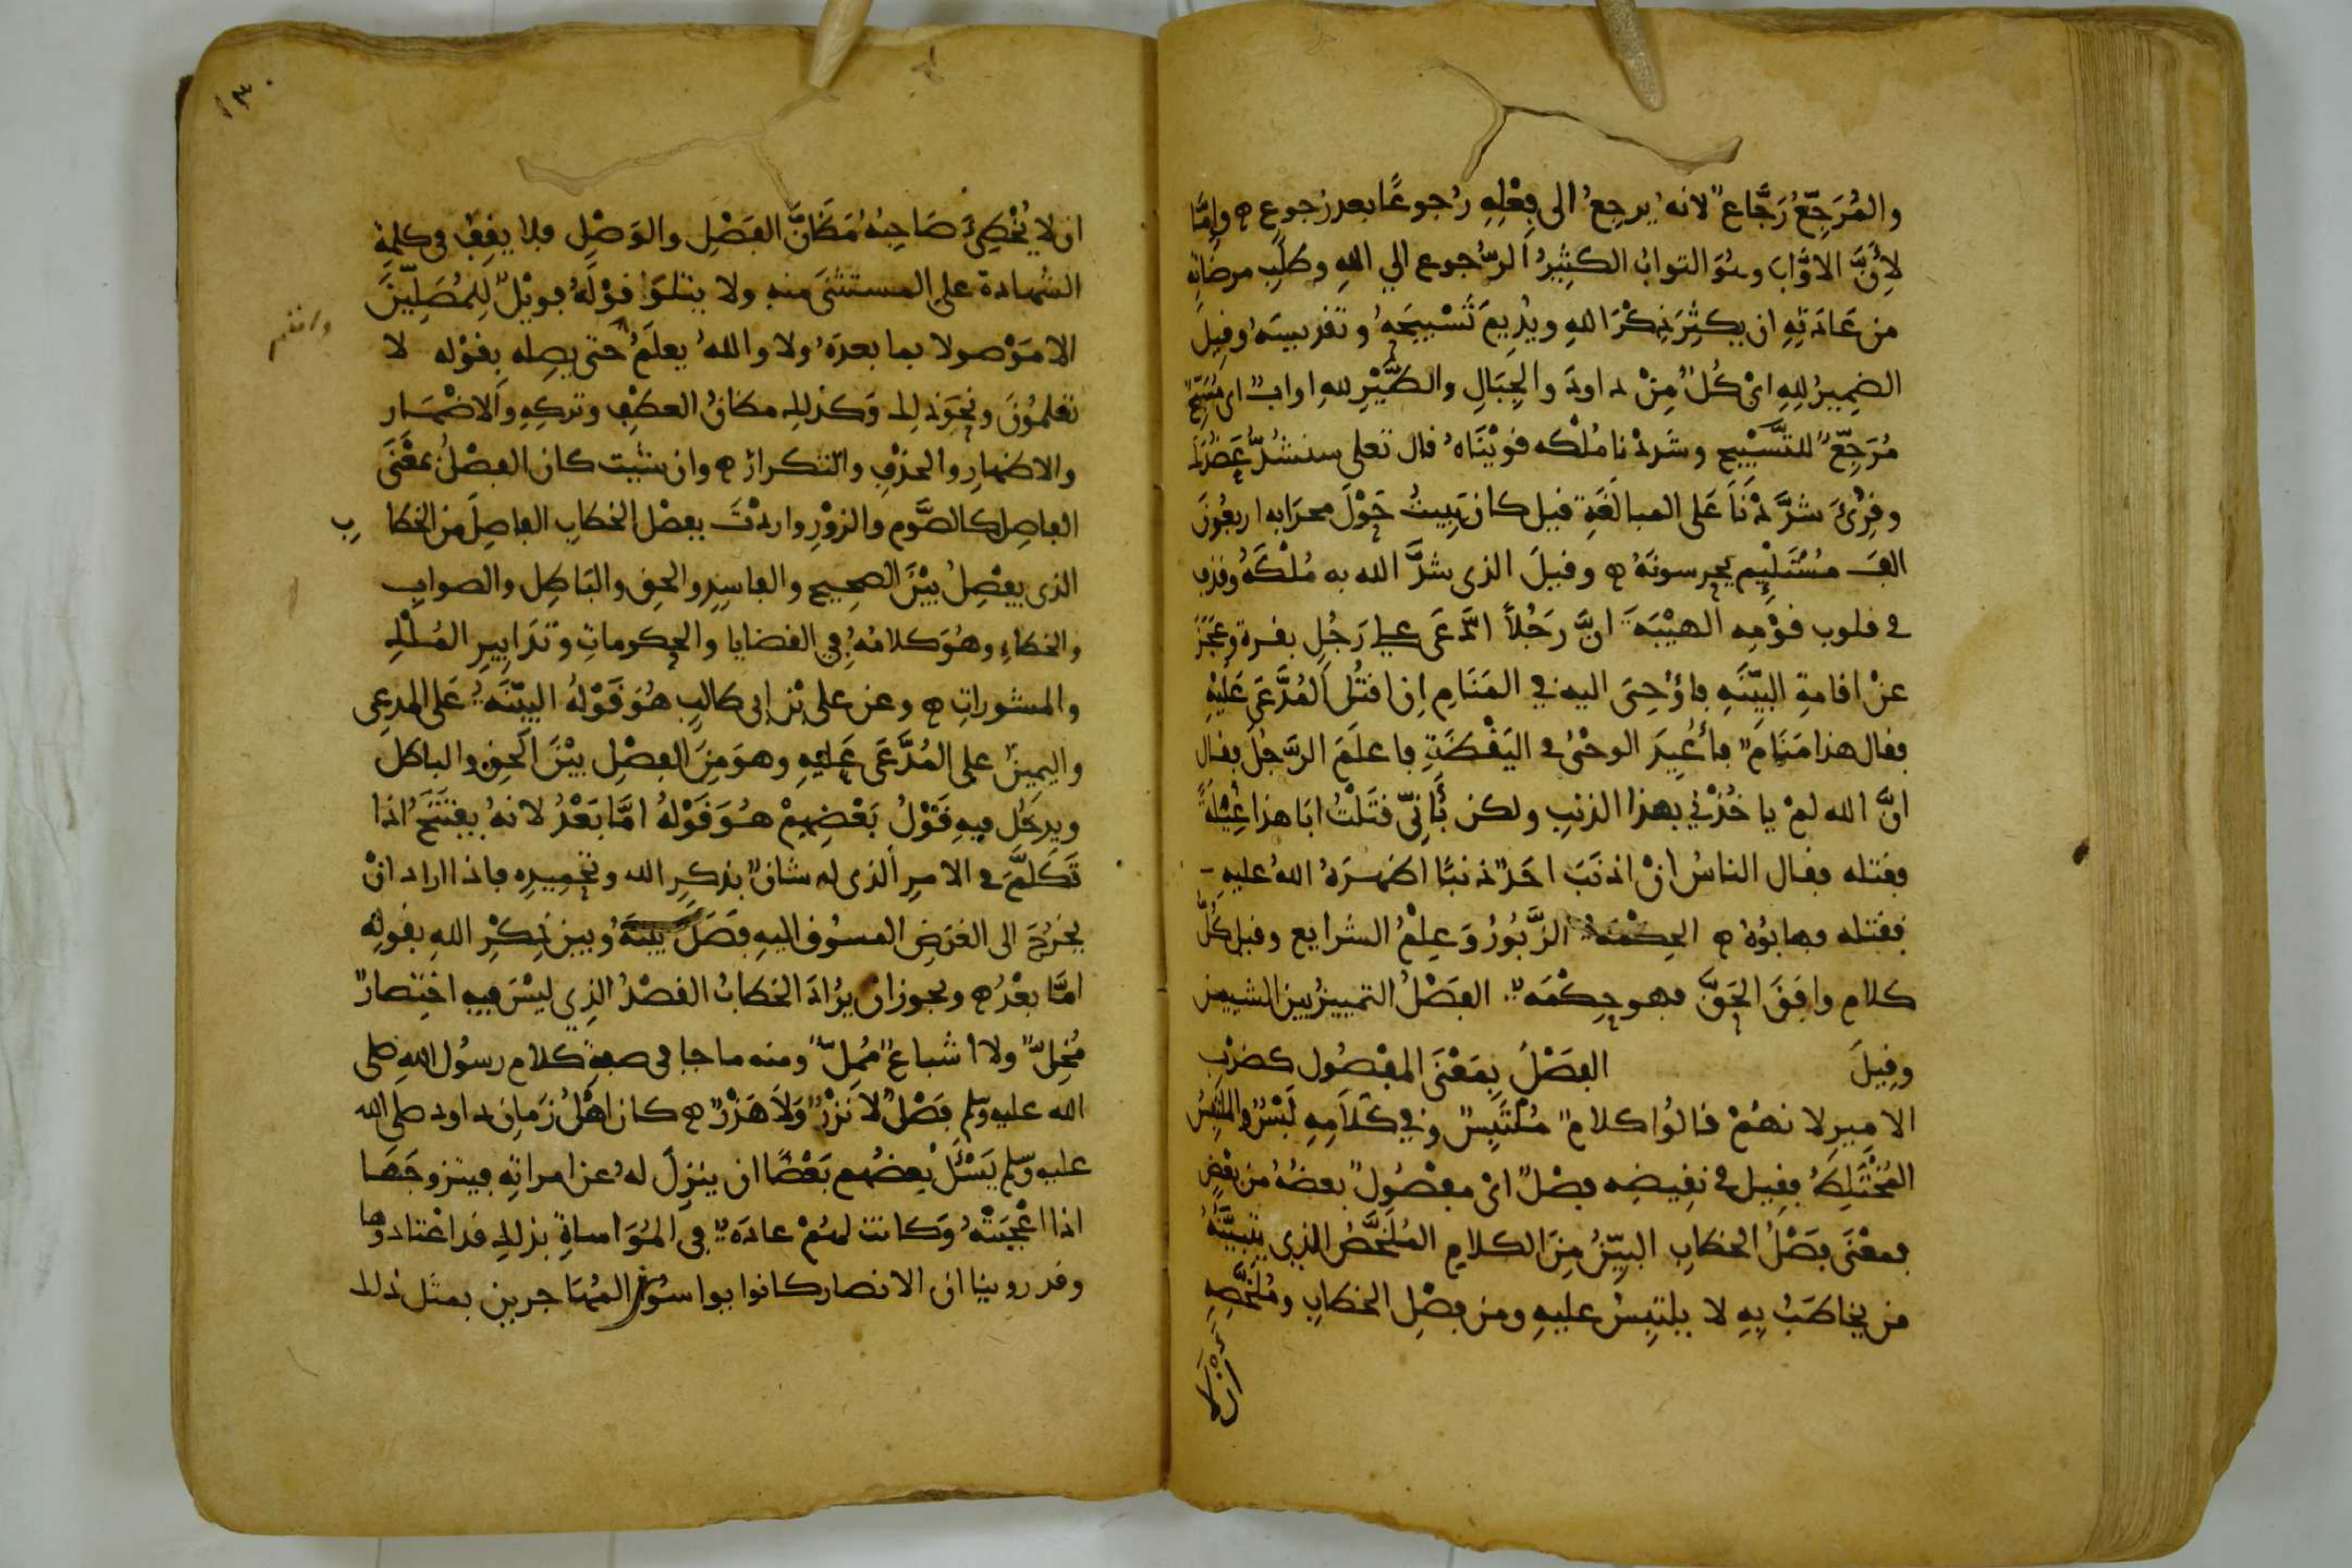 والمُرَجِّعُ رَجَّاعٌ لانه يرجِعُ الى فِعْلِهِ رُجوعًا بعد رجوعٍ وإمَّا
لِأَنَّ الاوَّابَ وهُوَ التوابُ الكثِيرُ الرُّجوع الي اللهِ وطلَبِ مرضَاتِهِ
من عَادَتِهِ ان يكثِرَ ذِكْرَ اللهِ ويُدِيمَ تَسْبِيحَهُ وتقديسَهُ وقِيلَ
الضمِيرُ لِلهِ اىْ كُلٌّ مِنْ داودَ والجِبَالِ والطَّيْرِ للهِ اوابٌ اى مُسَبِّحٌ
مُرَجِّعٌ للتَّسْبِيحِ وشَددْنا مُلْكه قوّيْنَاهُ قال تعلى سنشُدُّ عَضُدَكَ
وقُرِئَ شدَّدْنَا عَلى المبالَغَةِ قيل كان يَبِيتُ حَوْلَ محرَابه اربعُونَ
الفَ مُسْتَلْئِمٍ يحرسونَهُ وقيلَ الذى شدَّ الله به مُلْكَهُ وقذف
في قلوب قوْمِه الهيْبَةَ انَّ رَجُلاً ادَّعَى على رَجُلٍ بقرة وعَجَزَ
عنْ اقامةِ البيِّنَةِ فاوْحِىَ اليه في المَنَامِ انِ اقتُلِ المُدَّعَى عَلَيْهِ
فقال هذا مَنَامٌ فأُعِيدَ الوحْىُ في اليَقْظَةِ فاعلَمَ الرَّجُلَ فقال
انَّ الله لمْ ياخُذْنِي بهذا الذنبِ ولكن بأَنِّي قتَلْتُ ابَا هذا غِيْلَةً
فقتله فقال الناسُ انْ اذنَبَ احَدٌ ذنبًا اظهَرَهُ اللهُ عليهِ
فقتله فهابُوهُ الحِكْمَةُ الزَّبُورُ وَعِلْمُ الشرايع وقيل كُلُّ
كلامٍ وافَقَ الحَقَّ فهو حِكْمَةٌ الفَصْلُ التمييزُ بين الشيين
وقِيلَ الفَصْلُ بِمَعْنَى المفْصُول كضرْبِ
الامِيرِ لانهُمْ قالُوا كلامٌ مُلْتَبِسٌ وفي كلامِهِ لَبْسٌ والملتبِسُ
المُخْتَلِطُ فقِيل في نقِيضِه فصْلٌ اىْ مفْصُولٌ بعضُهُ من بعْضٍ
فمعْنَى فصْلُ الخطابِ البيِّنُ مِنَ الكلامِ المُلَخَّصُ الذِي يتبيَّنُهُ
من يخاطَبُ بِهِ لا يلتبِسُ عليهِ ومن فصْلِ الخطابِ ومُلَخَّصِهِ
ان لا
١٣٠
ان لا يُخْطِئَ صَاحِبُهُ مَظَانَّ الفَصْلِ والوَصْلِ فلا يقِفُ في كلمةِ
الشهادة على المستثنَى منهِ ولا يتلوَا قوْلَهُ فويْلٌ لِلْمُصَلِّينَ
الا مَوْصولا بما بعدَهُ ولا واللهُ يعلَمُ حتى يصِله بقوْله لا
تعلمُونَ ونحْوَ ذلِك وَكذلك مظانُّ العطْفِ وتركِهِ والاضْمَارِ
والاظهارِ والحذْفِ والتكرارِ وان شيت كان الفصْلُ بمعْنَى
الفاصِل كالصَّوْمِ والزوْرِ واردْتَ بفصْل الخطابِ الفاصِلَ من الخطابِ
الذى يفْصِلُ بيْنَ الصحِيحِ والفاسِدِ والحقِ والبَاطِل والصوابِ
والخطاءِ وهُوَ كلامُهُ في القضايا والحكوماتِ وتدَابِيرِ المُلْكِ
والمشوراتِ وعن على بْن ابى طالبٍ هُوَ قَوْلُهُ البيّنَةُ عَلى المدعِى
واليمِينُ على المُدَّعَى عَلَيْهِ وهوَ مِنَ الفصْلِ بيْنَ الحقِ والباطل
ويدخُل فيهِ قَوْلُ بَعْضِهِمْ هُوَ قَوْلُهُ امَّا بَعْدُ لانهُ يفتَتحُ اذا
تَكَلَّمَ في الامرِ الذى له شانٌ بذكرِ الله وتحميدِه فاذا اراد انْ
يخرُجَ الى الغرَضِ المسُوقِ اليهِ فَصَلَ بيْنَهُ وبين ذِكْرِ اللهِ بقولِه
امَّا بعْدُ ويجوز ان يرَادَ الخطابُ القصْدُ الذِي ليْسَ فيهِ اختِصارٌ
مُخِلٌّ ولا اشباعٌ مُمِلٌّ ومنه ما جا في صفةِ كلام رسوُل الله صلى
الله عليه وسلم فَصْلٌ لا نَزْرٌ وَلاَ هَذْرٌ كان اهْلُ زمانِ داود صلى الله
عليه وسلم يَسْئَلُ بعضُهم بَعْضًا ان ينزِلَ لهُ عن امراتِهِ فيتزوجَهَا
اذا اعْجَبَتْهُ وَكانت لهُمْ عادَةٌ في المُوَاساةِ بذلك قد اعْتادوها
وقد روينا ان الانصار كانوا يواسُون المُهَاجرين بمثل ذلك